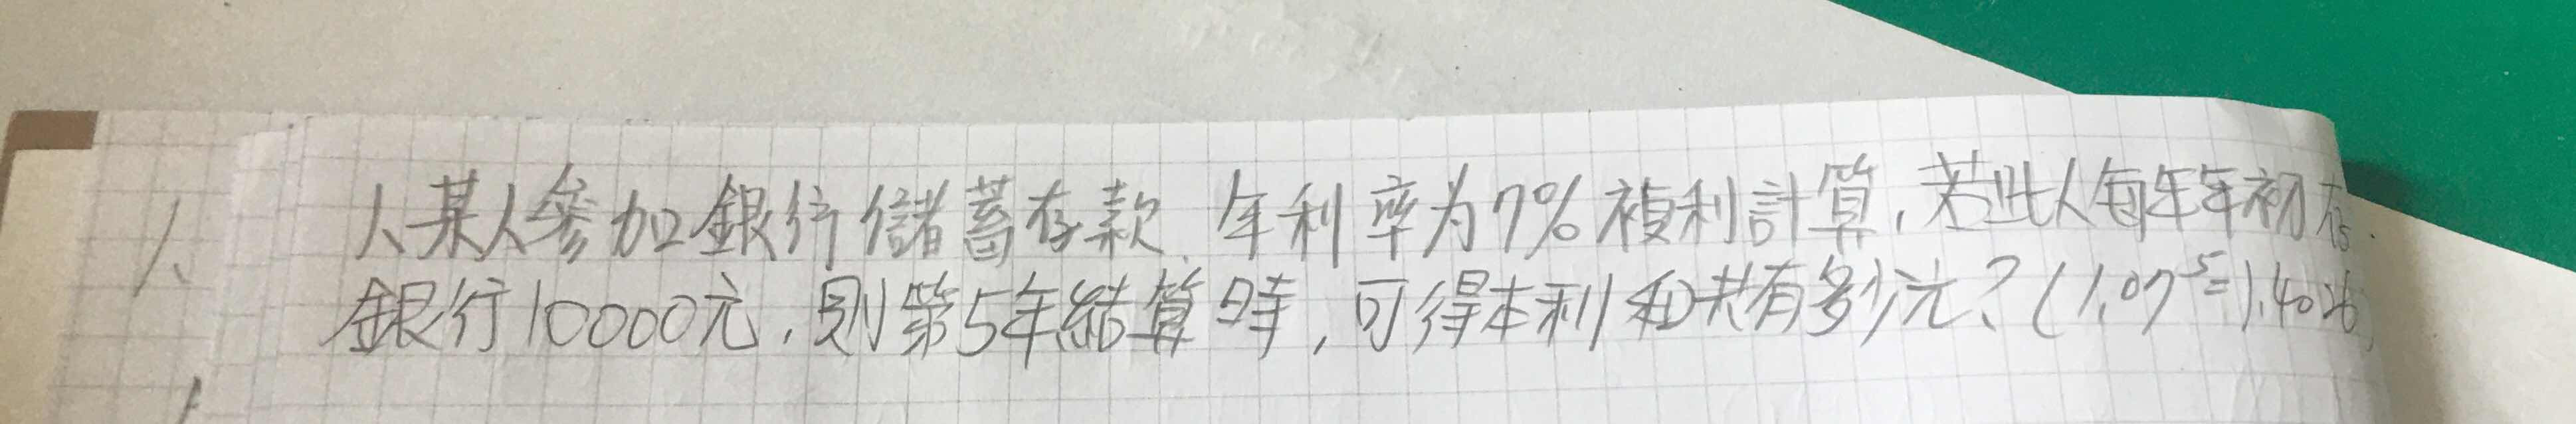 1、 1、某人參加銀行儲蓄存款、年利率为7%複利計算,若此人每年年初存
銀行10000元,則第5年結算時,可得本利和共有多少元?(1.07⁵=1.4026)